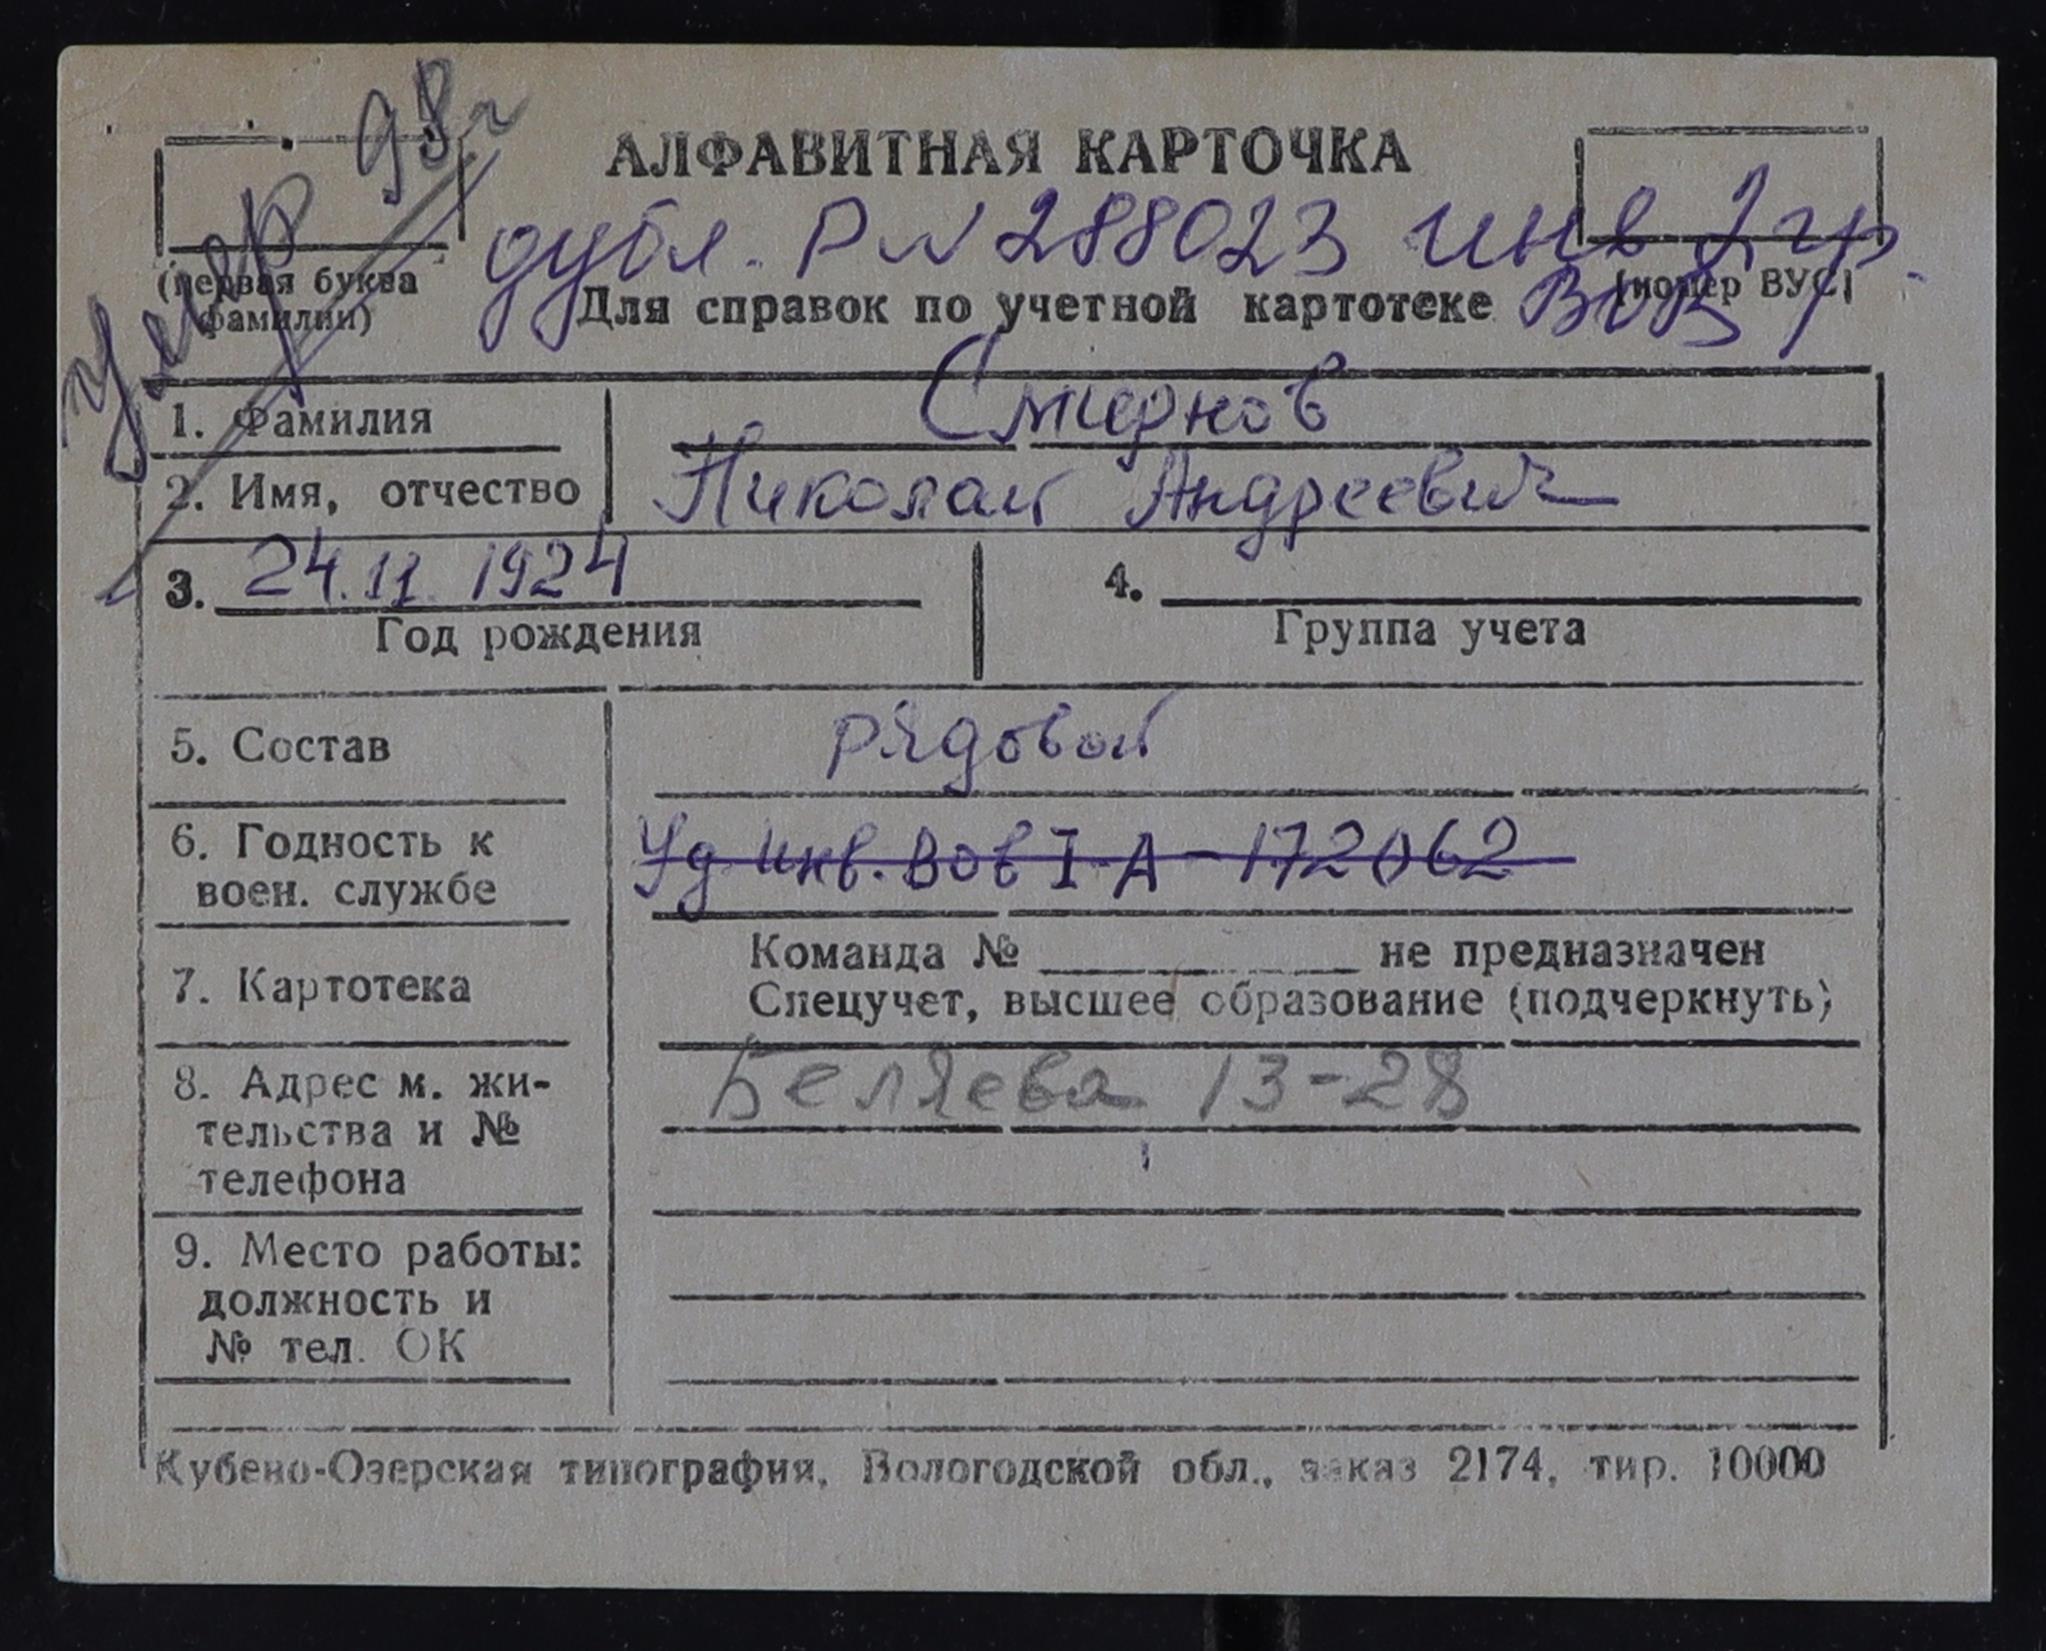 умер 98г
АЛФАВИТНАЯ КАРТОЧКА
дубл. Р № 288023 инв 2 гр.
ВОВ
(первая буква
фамилии)
(номер ВУС)
Для справок по учетной картотеке
1. Фамилия Смирнов
2. Имя, отчество Николай Андреевич
3. 24.11.1924
Год рождения
4.
Группа учета
5. Состав рядовой
6. Годность к
воен. службе
Уд инв. Вов I-А-172062
7. Картотека
Команда № не предназначен
Спецучет, высшее образование (подчеркнуть)
8. Адрес м. жи-
тельства и №
телефона
Беляева 13-28
9. Место работы:
должность и
№ тел. ОК
Кубено-Озерская типография, Вологодской обл., заказ 2174, тир. 10000